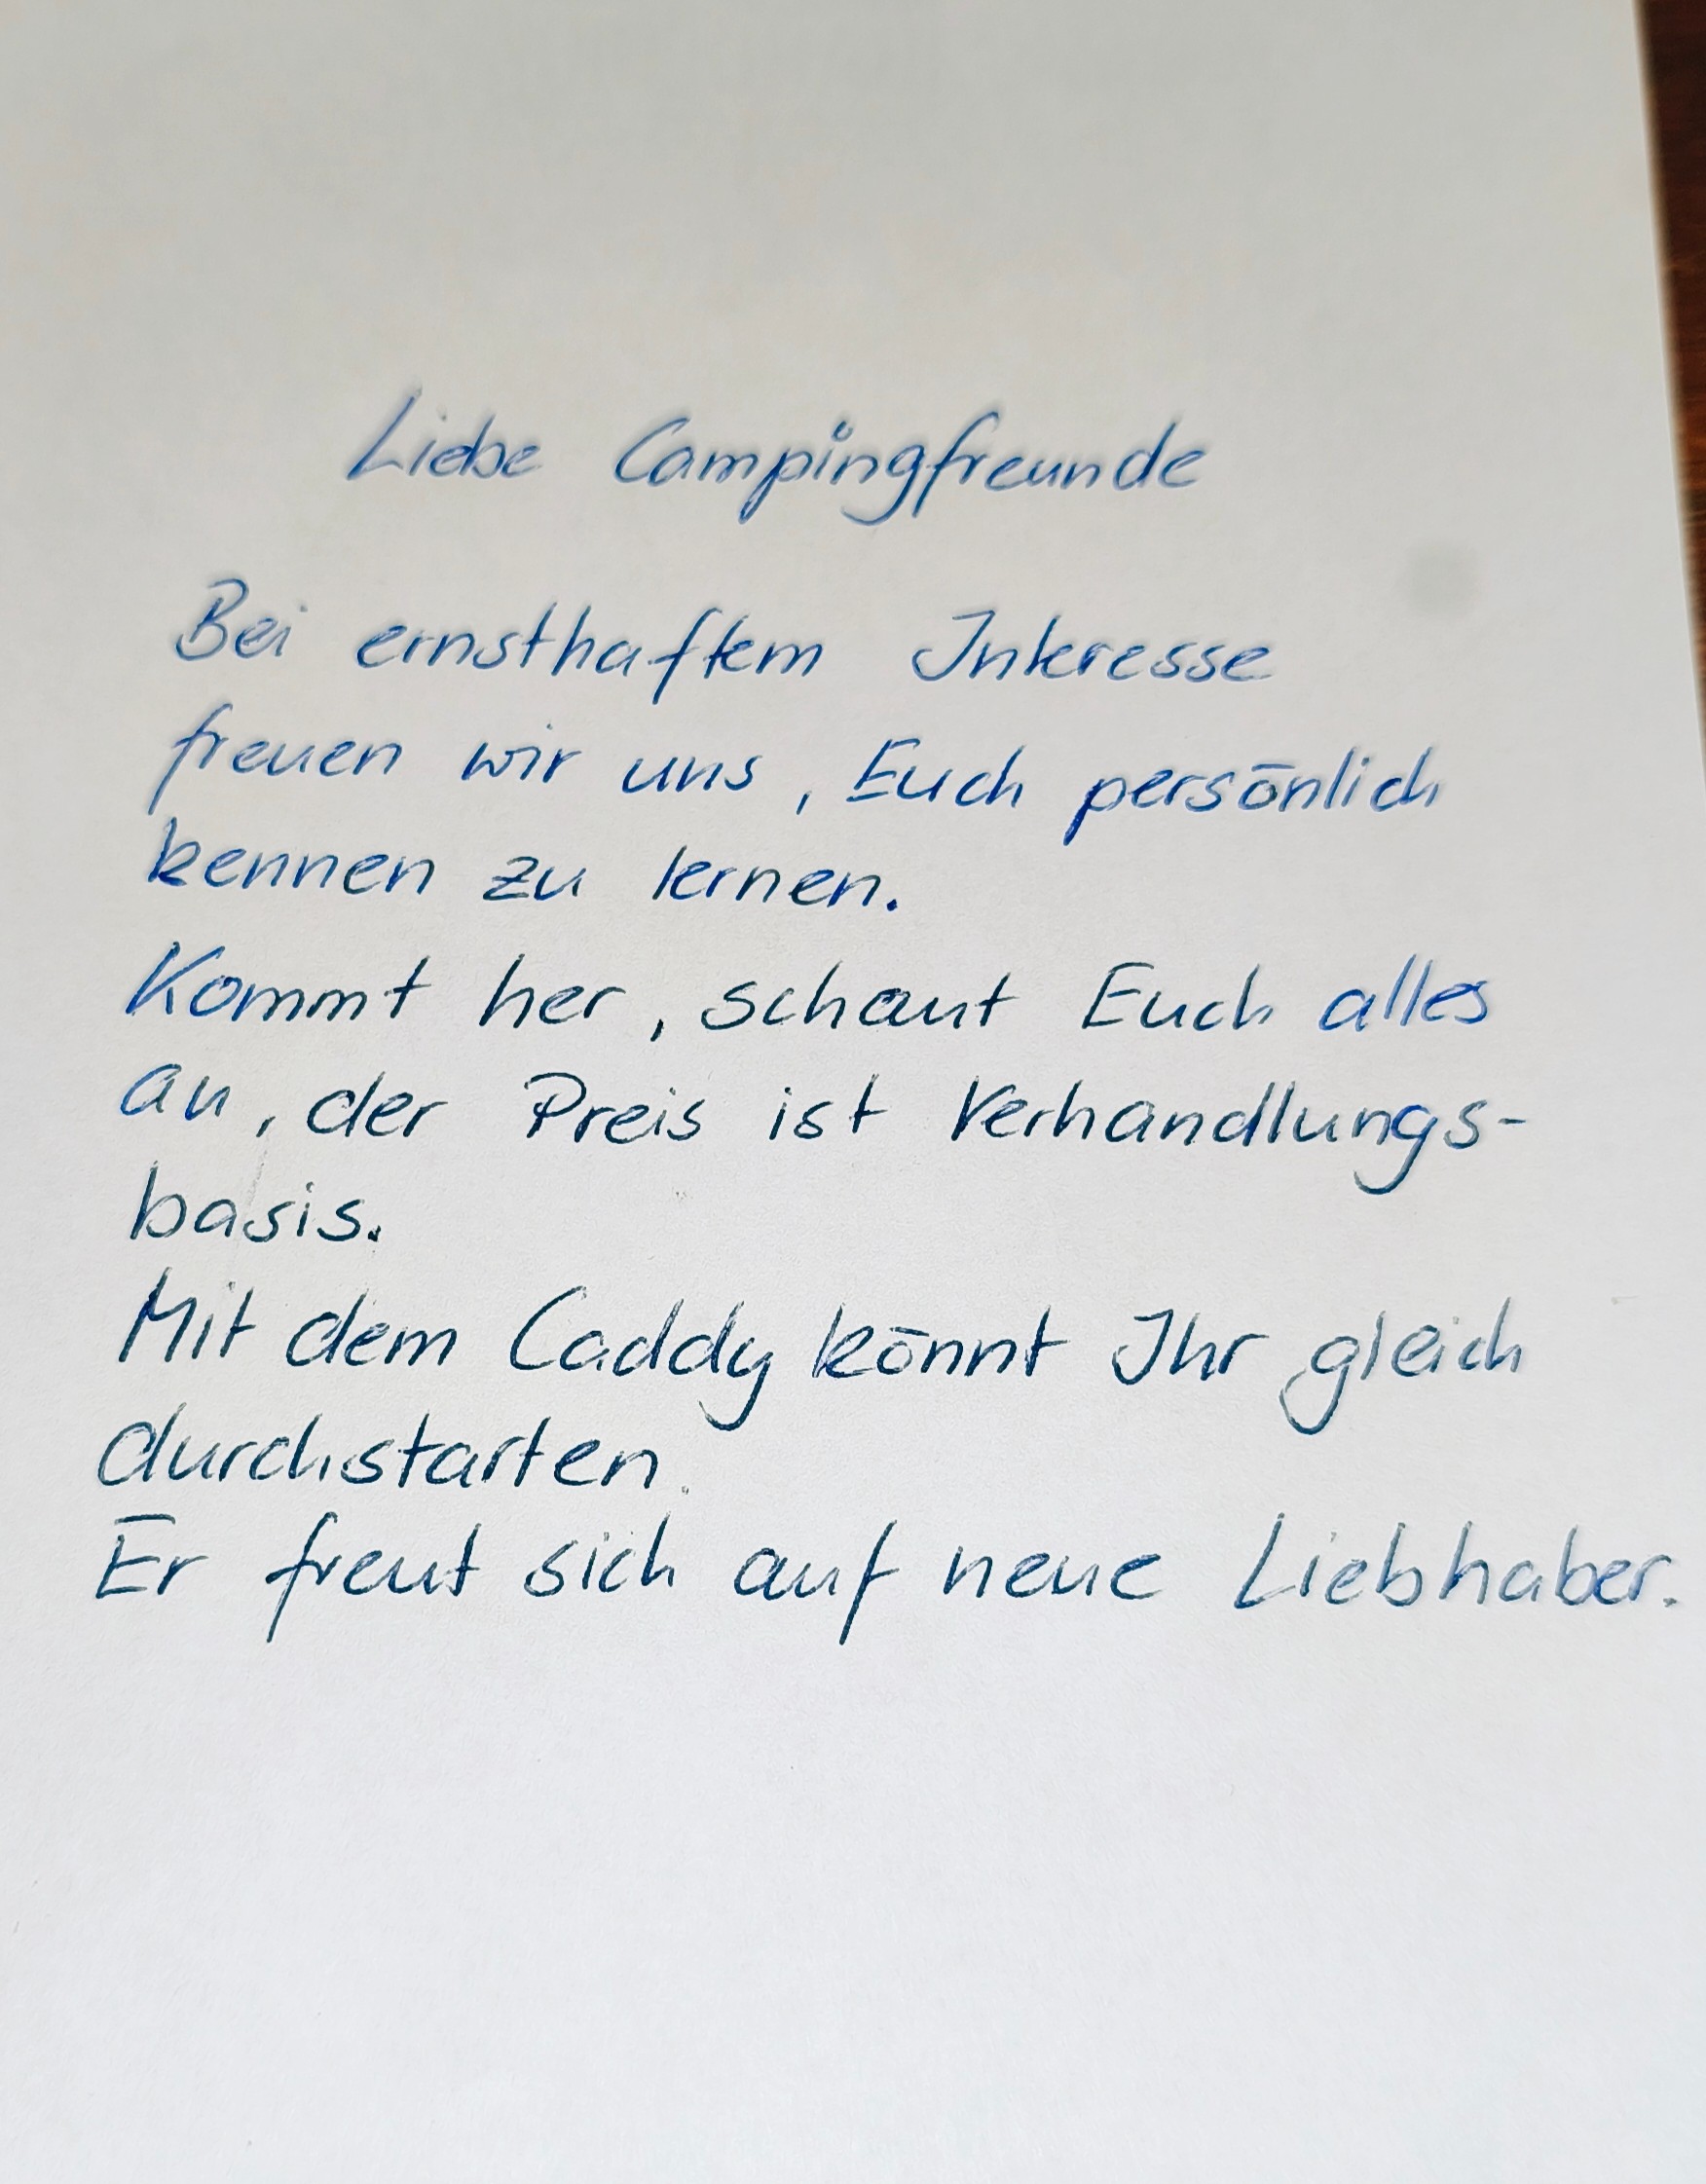 Liebe Campingfreunde
Bei ernsthaftem Interesse
freuen wir uns, Euch persönlich
kennen zu lernen.
Kommt her, schaut Euch alles
an, der Preis ist Verhandlungs-
basis.
Mit dem Caddy könnt Ihr gleich
durchstarten.
Er freut sich auf neue Liebhaber.